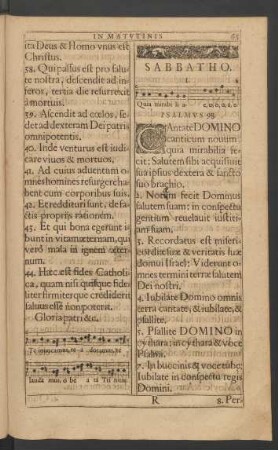 IN MATVTINIS 65
ita Deus & Homo vnus est
Christus.
38. Qui passus est pro salu-
te nostra, descendit ad in-
feros, tertia die resurrexit
à mortuis.
39. Ascendit ad cœlos, se-
det ad dexteram Dei patris
omnipotentis.
40. Inde venturus est iudi-
care viuos & mortuos.
41. Ad cuius aduentum o-
mnes homines resurgere ha-
bent cum corporibus suis.
42. Et reddituri sunt, de fa-
ctis propriis rationem.
43. Et qui bona egerunt i-
bunt in vitam æternam, qui
verò mala in ignem æter-
num.
44. Hæc est fides Catholi-
ca, quam nisi quisque fide-
liter firmiterque crediderit
saluus esse non poterit.
Gloria patri &c.
SABBATHO.
Quia mirabi
PSALMVS
CAntate DOMINO
canticum nouum:
quia mirabilia fe-
cit: Salutem sibi acquisiuit
sua ipsius dextera & sancto
suo brachio.
2. Notum fecit Dominus
salutem suam: in conspectu
gentium reuelauit iustiti-
am suam.
3. Recordatus est miseri-
cordiæ suæ & veritatis suæ
domui Israel: Viderunt o-
mnes termini terræ salutem
Dei nostri.
4. Iubilate Domino omnis
terra cantate, & iubilate, &
psallite.
5. Psallite DOMINO in
cythara: in cythara & voce
Psalmi.
7. In buccinis & voce tubæ:
Iubilate in conspectu regis
Domini.
R 8. Per-